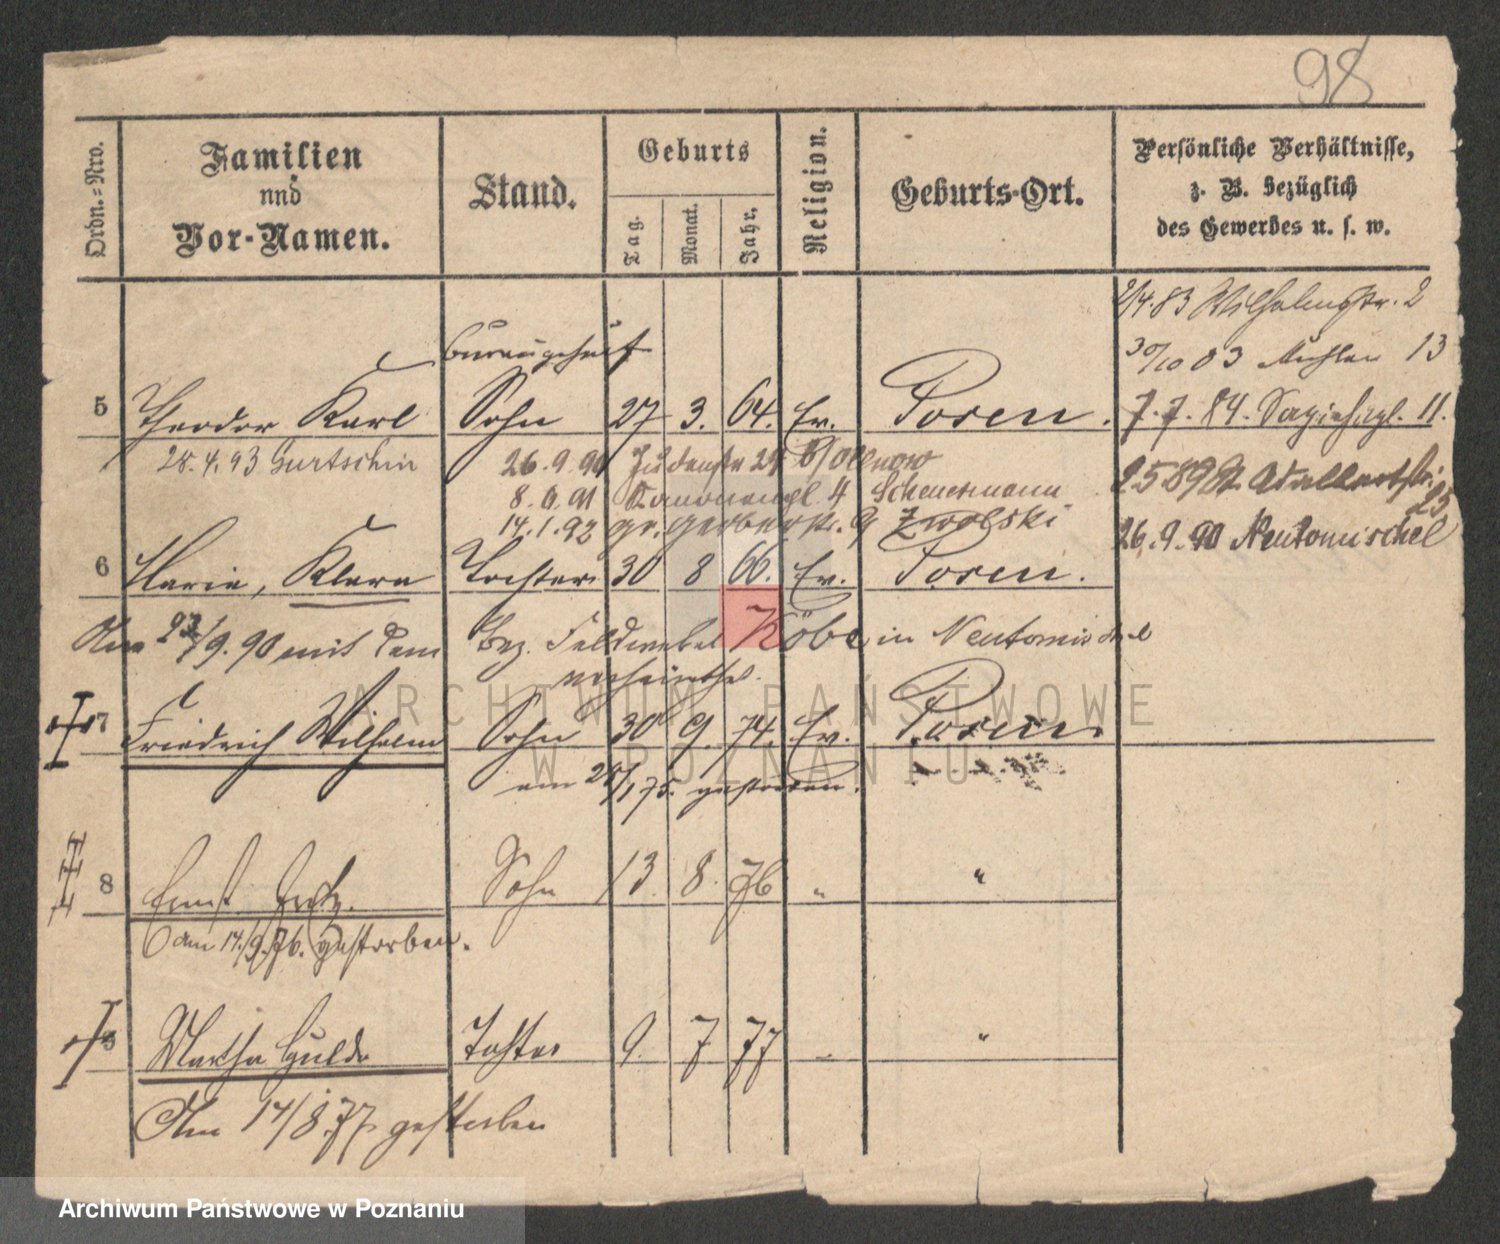 98
Ordn.=Nro.
Familien
und
Vor-Namen.
Stand.
Geburts
Tag.
Monat.
Jahr.
Religion.
Geburts-Ort.
Persönliche Verhältnisse,
z. B. bezüglich
des Gewerbes u. s. w.
2/4.83 Wilhelmstr. 2
30/10 83 Mühlen 13
5 Theodor Karl Sohn 27 3. 64. Ev. Posen. 7.7.84. 11.
28.4.93 Gurtschin 26.9.90 Judenstr 29 b/Ollnow
8. 91 4 Scheuermann 2 5 89 St. Adalbertstr. 25
14.1.92 gr. Gerberstr. 9 Zwolski 26.9.90 Neutomischel
6 Maria, Klara Tochter 30 8 66. Ev. Posen.
Am 23/9.90 mit dem Bez. Feldwebel Köbe in Neutomischel
verheirathet.
7 Friedrich Wilhelm Sohn 30 9. 74. Ev. Posen.
am 28/1 75. gestorben.
8 Ernst Fritz. Sohn 13 8. 76 " "
am 14./9.76. gestorben.
Martha Hulda Tochter 9. 7 77 "
Am 14/8.77 gestorben
ARCHIWUM PAŃSTWOWE
W POZNANIU
Archiwum Państwowe w Poznaniu